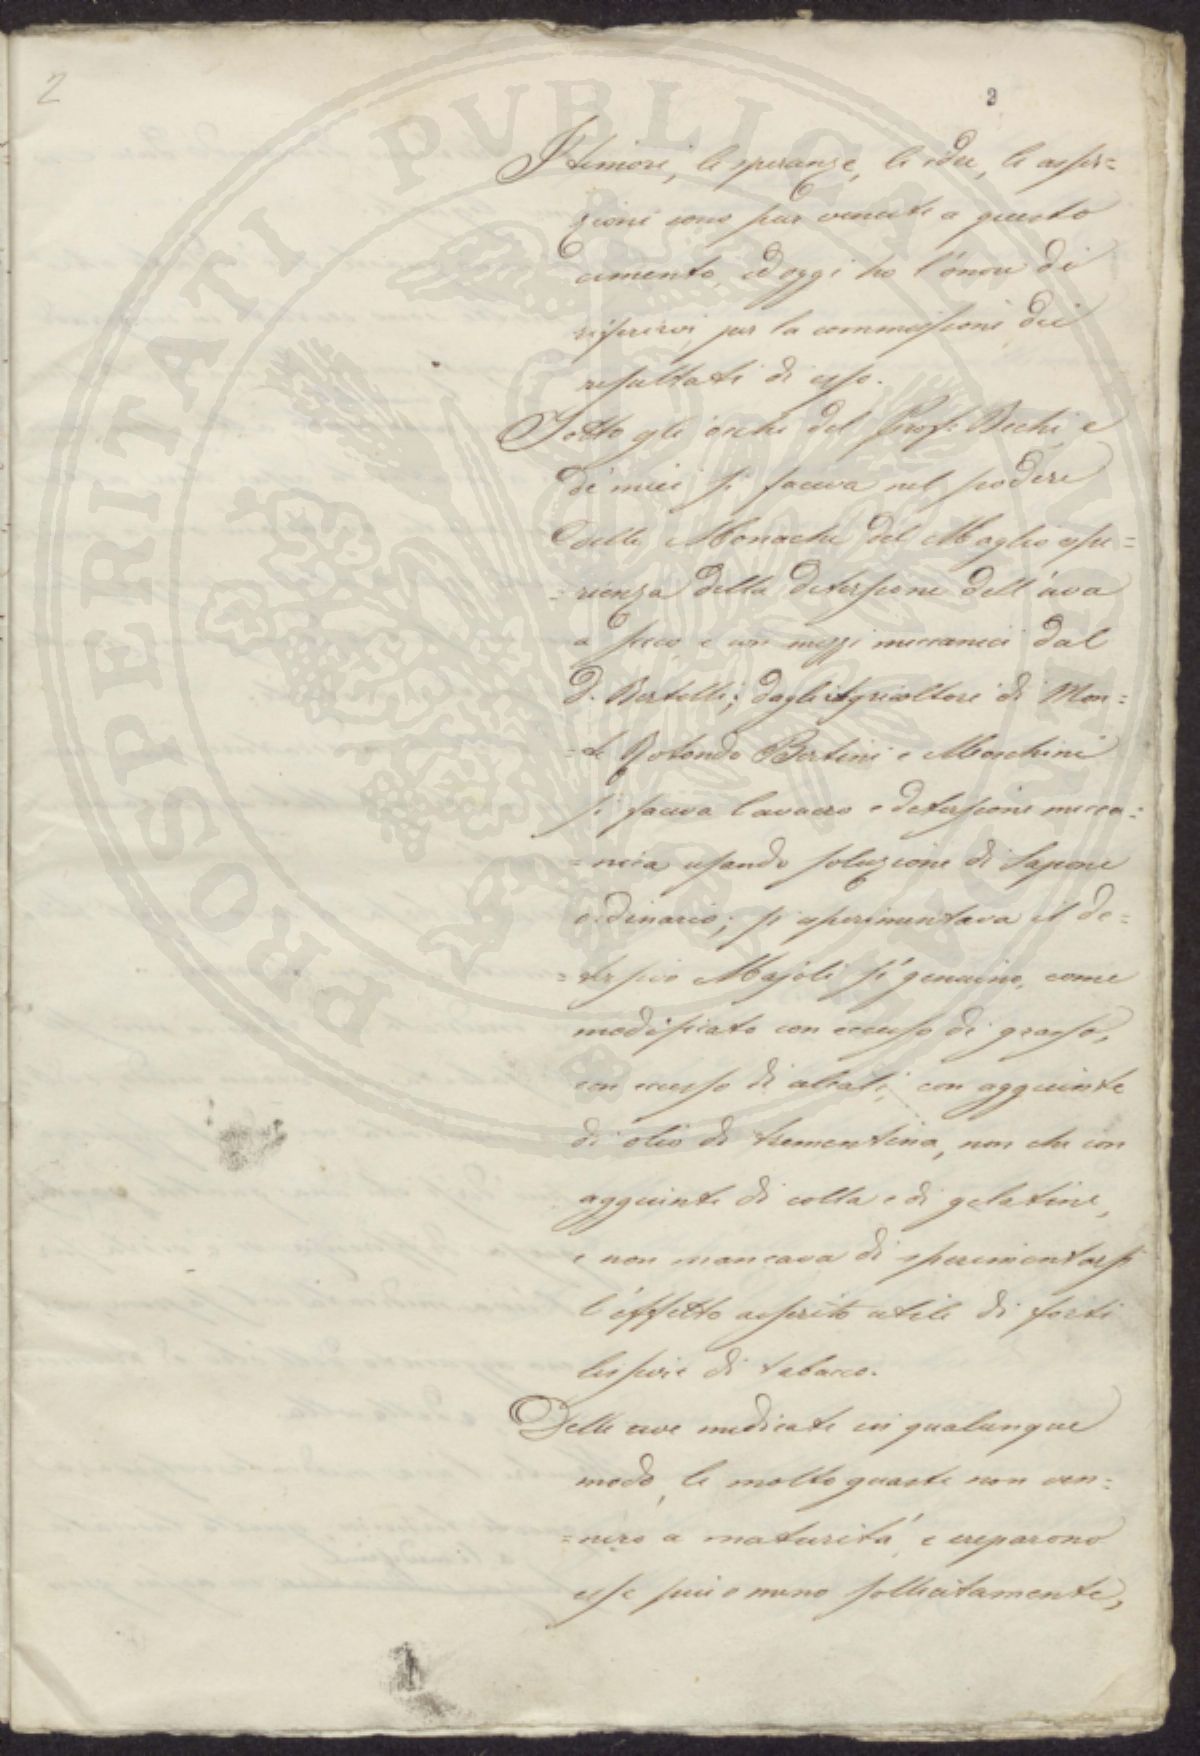 2
2
PROSPERITATI PUBLICAE AUGENDAE
I timori, le speranze, le idee, le asser=
zioni sono pur venute a questo
cimento, ed oggi ho l'onore di
riferirvi per la commissione dei
resultati di esso.
Sotto gli occhi del Prof: Bechi e
de' miei si faceva nel podere
delle Monache del Maglio espe=
=rienza della detersione dell'uva
a secco e con mezzi meccanici dal
D. Bertelli; dagli Agricoltori di Mon=
=te Rotondo Bertini e Moschini
si faceva lavacro e detersione mecca=
=nica usando soluzione di Sapone
ordinario; si esperimentava il de=
=tersivo Majoli sì genuino, come
modificato con eccesso di grasso,
con eccesso di alcali, con aggiunte
di olio di trementina, non che con
aggiunte di colla e di gelatine,
e non mancava di sperimentarsi
l'effetto asserito utile di forti
lissivie di tabacco.
Delle uve medicate in qualunque
modo, le molto guaste non ven=
=nero a maturità, e creparono
esse più o meno sollecitamente,